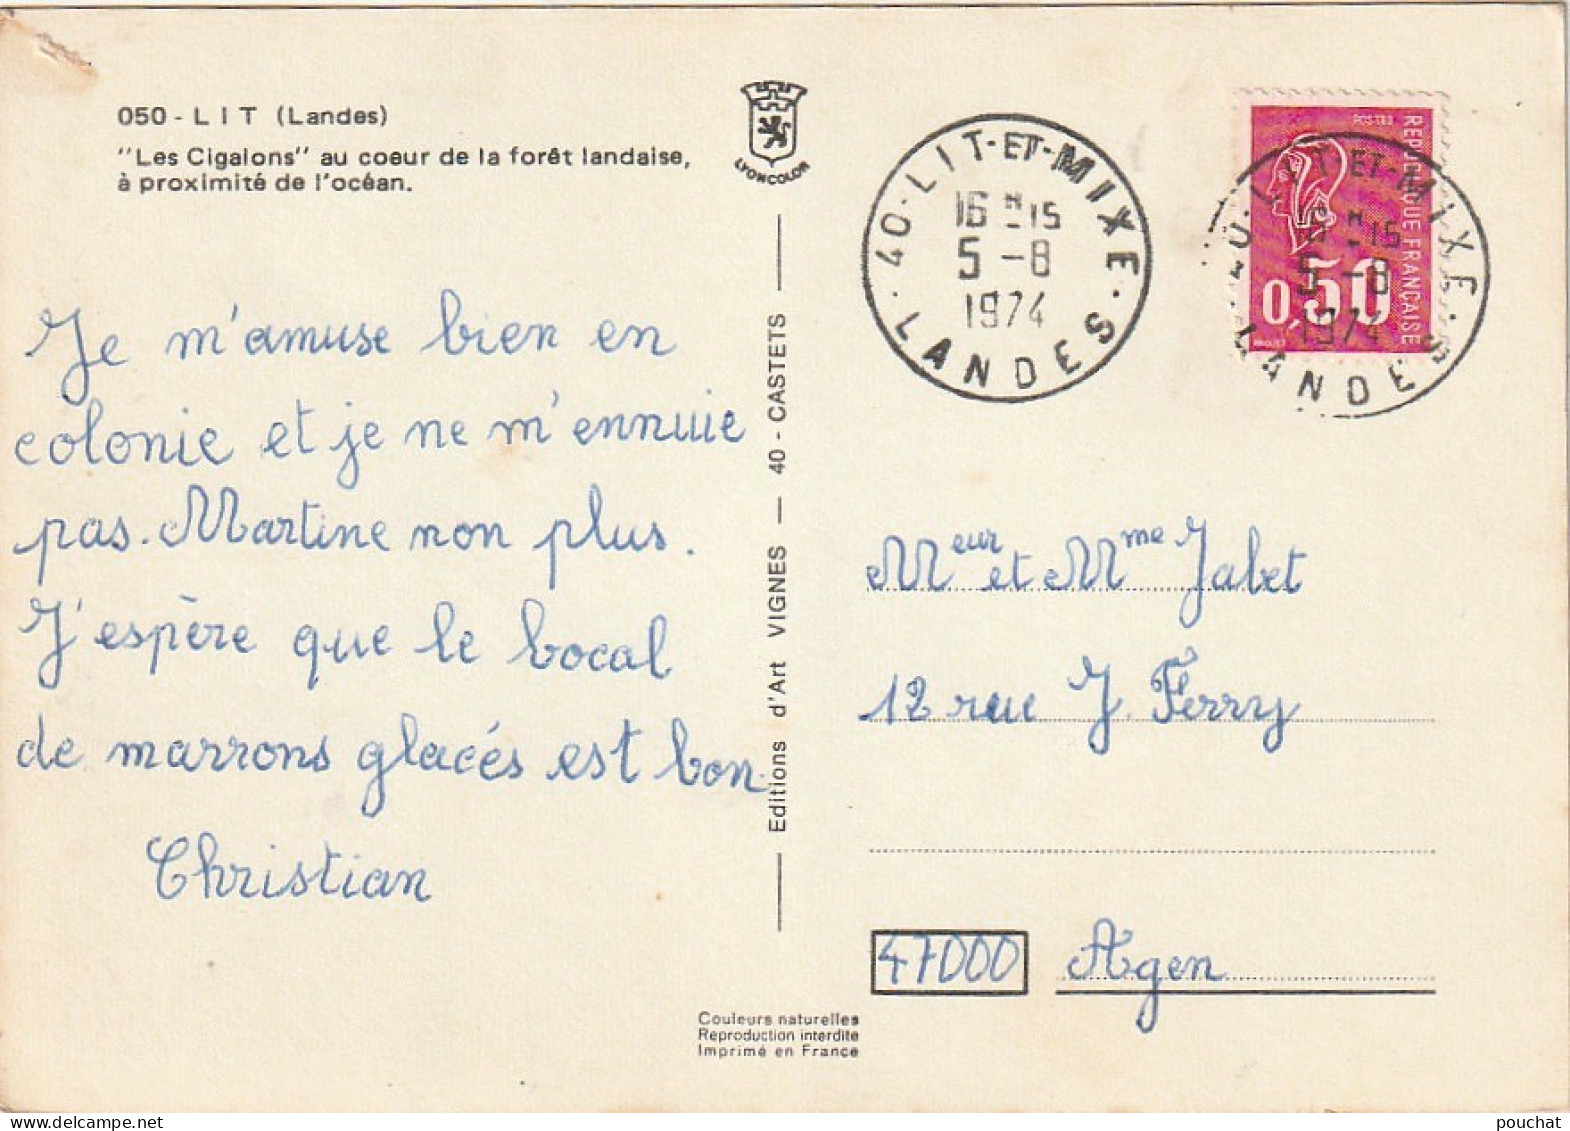 050 - LIT (Landes)
"Les Cigalons" au coeur de la forêt landaise,
à proximité de l'océan.
LYONCOLOR
Je m'amuse bien en
colonie et je ne m'ennuie
pas. Martine non plus.
J'espère que le bocal
de marrons glacés est bon.
Christian
Editions d'Art VIGNES — 40 - CASTETS
40 - LIT-ET-MIXE · LANDES ·
16 H -15
5 -8
1974
POSTES
REPUBLIQUE FRANÇAISE
0,50
40 - LIT-ET-MIXE · LANDES
16 H -15
5 -8
1974
Meur et Mme Jalbet
12 rue J. Ferry
47000 Agen
Couleurs naturelles
Reproduction interdite
Imprimé en France
www.delcampe.net
pouchat